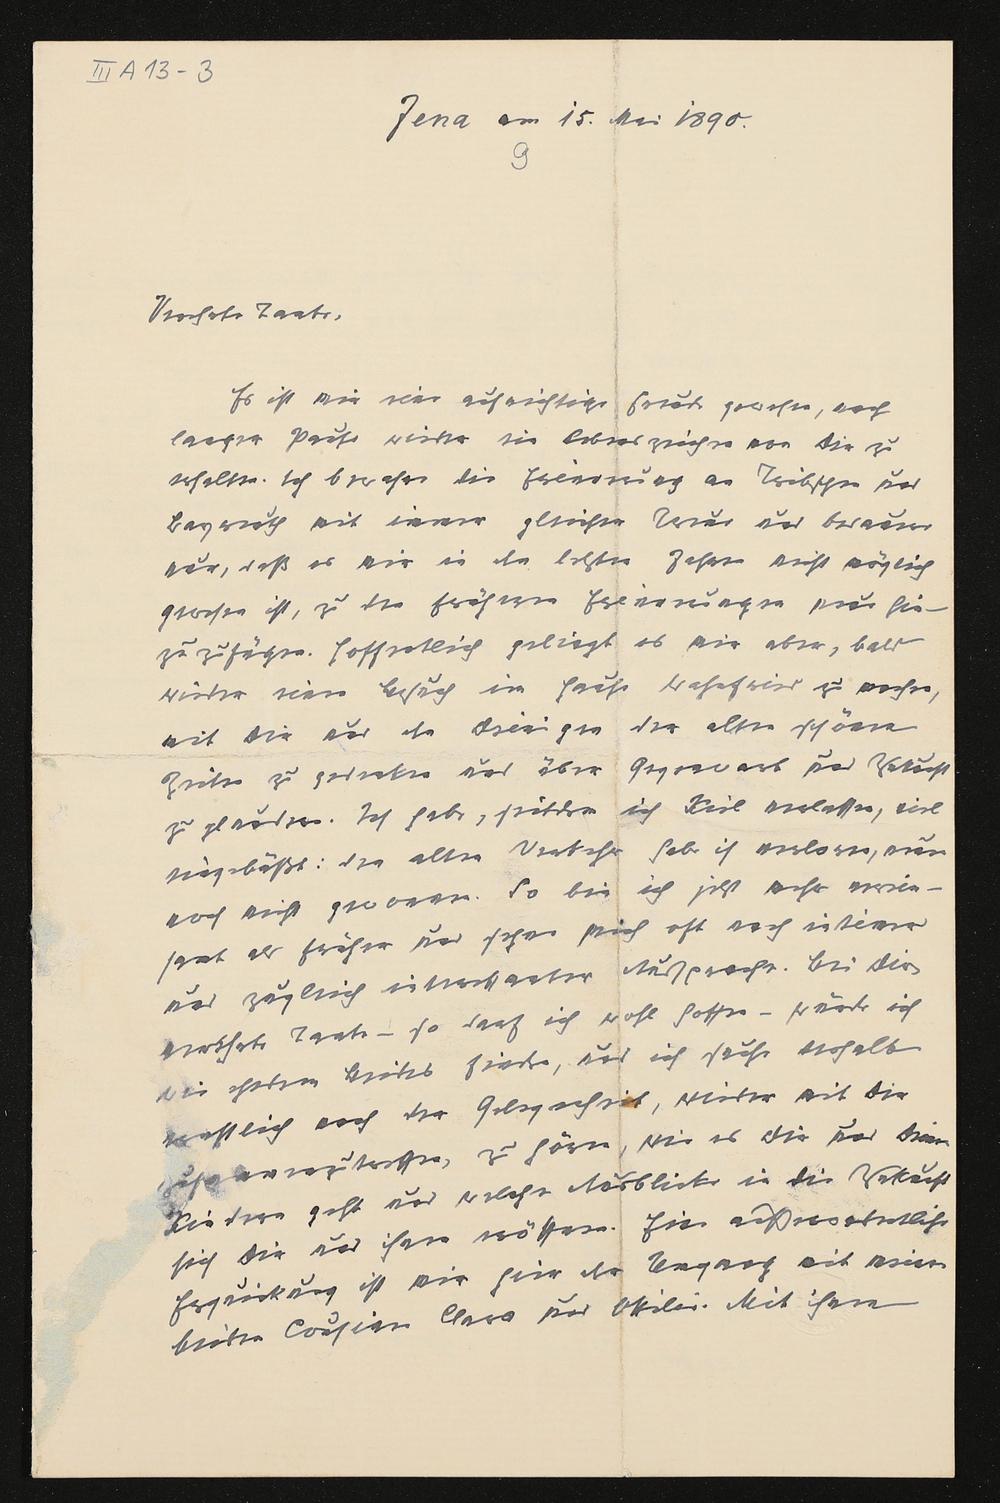 III A 13-3
Jena am 15. Mai 1890.
9
Verehrte Tante,
Es ist mir eine aufrichtige Freude gewesen, nach
langer Pause wieder ein Lebenszeichen von Dir zu
erhalten. Ich bewahre die Erinnerung an Tribschen und
Bayreuth mit immer gleicher Treue und bedauere
nur, daß es mir in den letzten Jahren nicht möglich
gewesen ist, zu den früheren Erinnerungen neue hin-
zuzufügen. Hoffentlich gelingt es mir aber, bald
wieder einen Besuch im Hause Wahnfried zu machen,
mit Dir und den Deinigen der alten schönen
Zeiten zu gedenken und über Gegenwart und Zukunft
zu plaudern. Ich habe, seitdem ich Kiel verlassen, viel
eingebüßt: den alten Verkehr habe ich verloren, neuen
noch nicht gewonnen. So bin ich jetzt mehr verein-
samt als früher und sehne mich oft nach intimer
und zugleich interessanter Aussprache. Bei Dir,
verehrte Tante – so darf ich wohl hoffen – würde ich
wie ehedem beides finden, und ich suche deshalb
ernstlich nach der Gelegenheit, wieder mit Dir
zusammenzutreffen, zu hören, wie es Dir und Deinen
Kindern geht und welche Ausblicke in die Zukunft
sich Dir und ihnen eröffnen. Eine außerordentliche
Erquickung ist mir hier der Umgang mit meinen
beiden Cousinen Clara und Ottilie. Mit ihnen